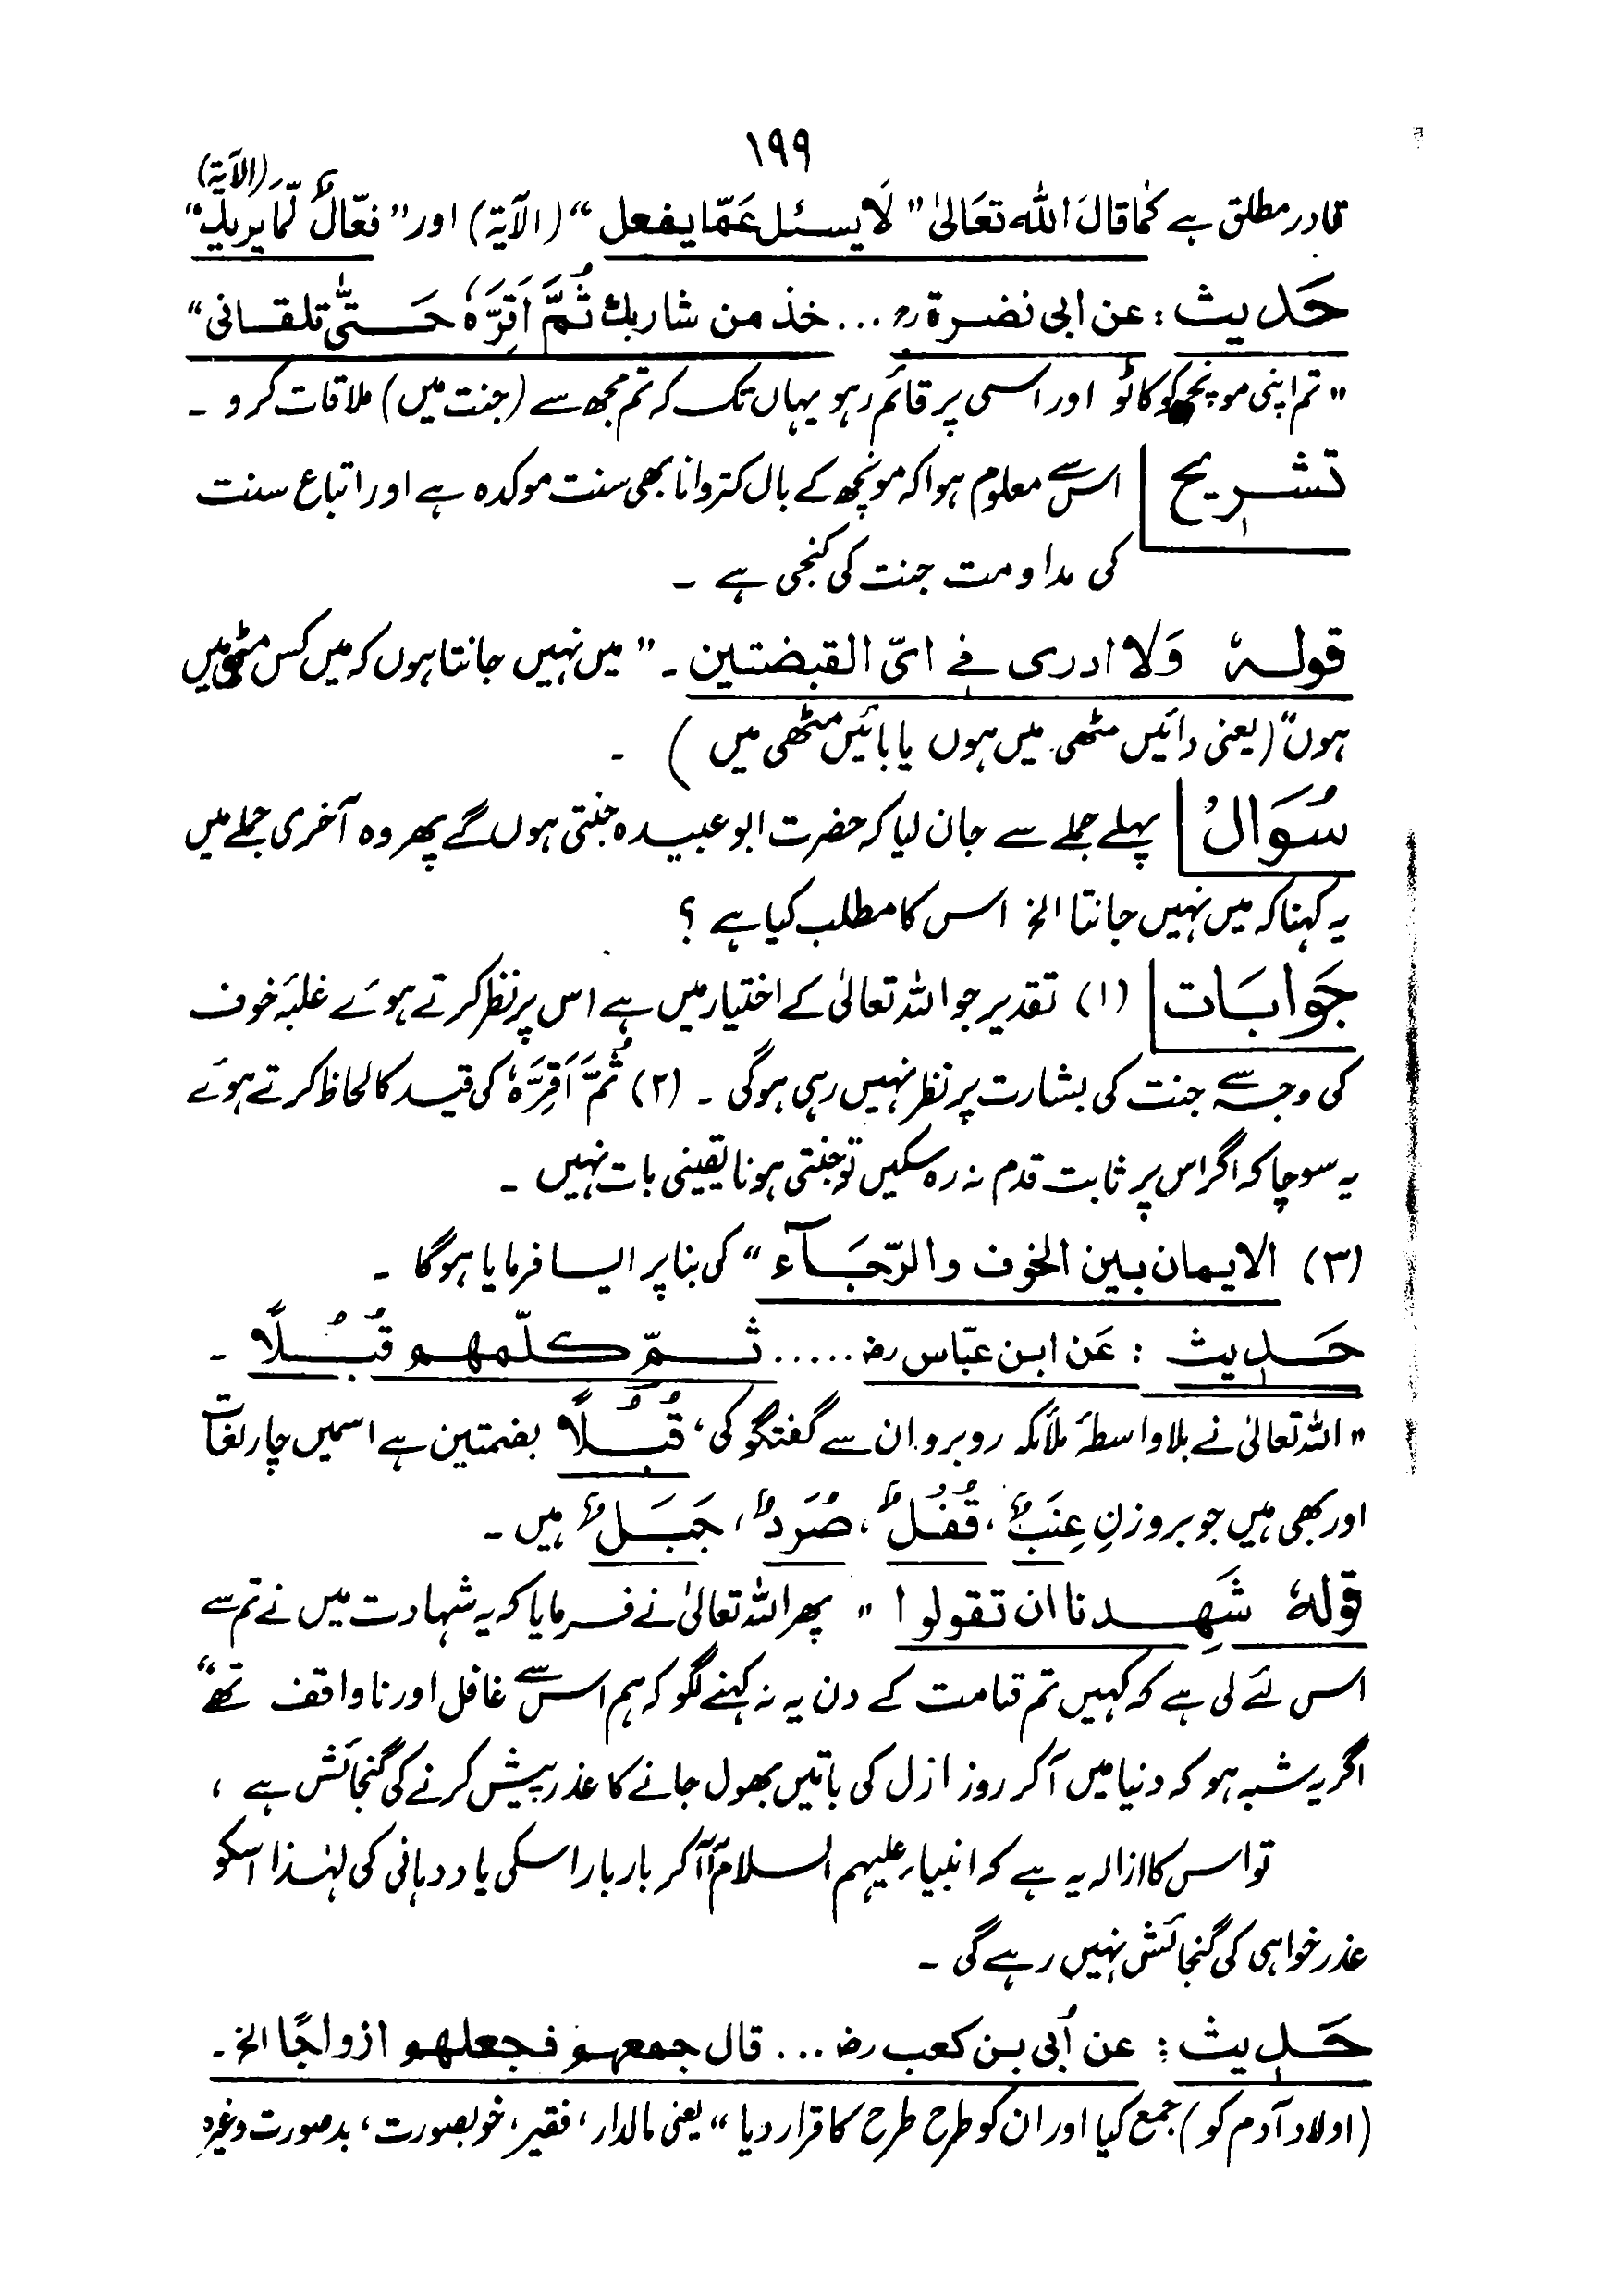 ۱۹۹
قادر مطلق ہے کَما قالَ اللہ تعَالیٰ ”لَا یسئل عَمّا یفعل“ (الآیۃ) اور ”فعّالٌ لِّمَا یرید“ (الآیۃ)
حَدیث : عن ابی نضرۃ رض ... خذ من شاربك ثُمَّ اَقِرَّہٗ حَتّٰی تلقانی“
”تم اپنی مونچھ کو کاٹو اور اسی پر قائم رہو یہاں تک کہ تم مجھ سے (جنت میں) ملاقات کرو ۔
تشریح | اس سے معلوم ہوا کہ مونچھ کے بال کتروانا بھی سنت موکدہ ہے اور اتباع سنت
کی مداومت جنت کی کنجی ہے ۔
قولہٗ وَلا ادری فے ایّ القبضتین ۔ ”میں نہیں جانتا ہوں کہ میں کس مٹھی میں
ہوں“ (یعنی دائیں مٹھی میں ہوں یا بائیں مٹھی میں) ۔
سُوَالْ | پہلے جملے سے جان لیا کہ حضرت ابو عبیدہ جنتی ہوں گے پھر وہ آخری جملے میں
یہ کہنا کہ میں نہیں جانتا الخ اس کا مطلب کیا ہے ؟
جَوابَات | (۱) تقدیر جو اللہ تعالیٰ کے اختیار میں ہے اس پر نظر کرتے ہوئے غلبۂ خوف
کی وجہ سے جنت کی بشارت پر نظر نہیں رہی ہوگی ۔ (۲) ثُمَّ اَقِرَّہٗ کی قید کا لحاظ کرتے ہوئے
یہ سوچا کہ اگر اس پر ثابت قدم نہ رہ سکیں تو جنتی ہونا یقینی بات نہیں ۔
(۳) الایمان بین الخوف والرّجَآء“ کی بنا پر ایسا فرمایا ہوگا ۔
حَدیث : عَن ابن عبّاس رض ..... ثمّ کلّمھم قُبُلًا ۔
”اللہ تعالیٰ نے بلا واسطۂ ملائکہ روبرو ان سے گفتگو کی، قُبُلًا بضمتین ہے اسمیں چار لغات
اور بھی ہیں جو بروزنِ عِنَبٌ، قُفُلٌ، صُرَدٌ، جَبَلٌ ہیں ۔
قولہٗ شَہِدنا ان تقولوا ” پھر اللہ تعالیٰ نے فرمایا کہ یہ شہادت میں نے تم سے
اس لئے لی ہے کہ کہیں تم قیامت کے دن یہ نہ کہنے لگو کہ ہم اس سے غافل اور ناواقف تھے“
اگر یہ شبہ ہو کہ دنیا میں آکر روز ازل کی باتیں بھول جانے کا عذر پیش کرنے کی گنجائش ہے ،
تو اس کا ازالہ یہ ہے کہ انبیاء علیہم السلام آآکر بار بار اسکی یاد دہانی کی لہٰذا اسکو
عذر خواہی کی گنجائش نہیں رہے گی ۔
حَدیث : عن اُبی بن کعب رض ... قال جمعہم فجعلھم ازواجًا الخ ۔
(اولاد آدم کو) جمع کیا اور ان کو طرح طرح کا قرار دیا“ یعنی مالدار، فقیر، خوبصورت، بدصورت وغیرہ